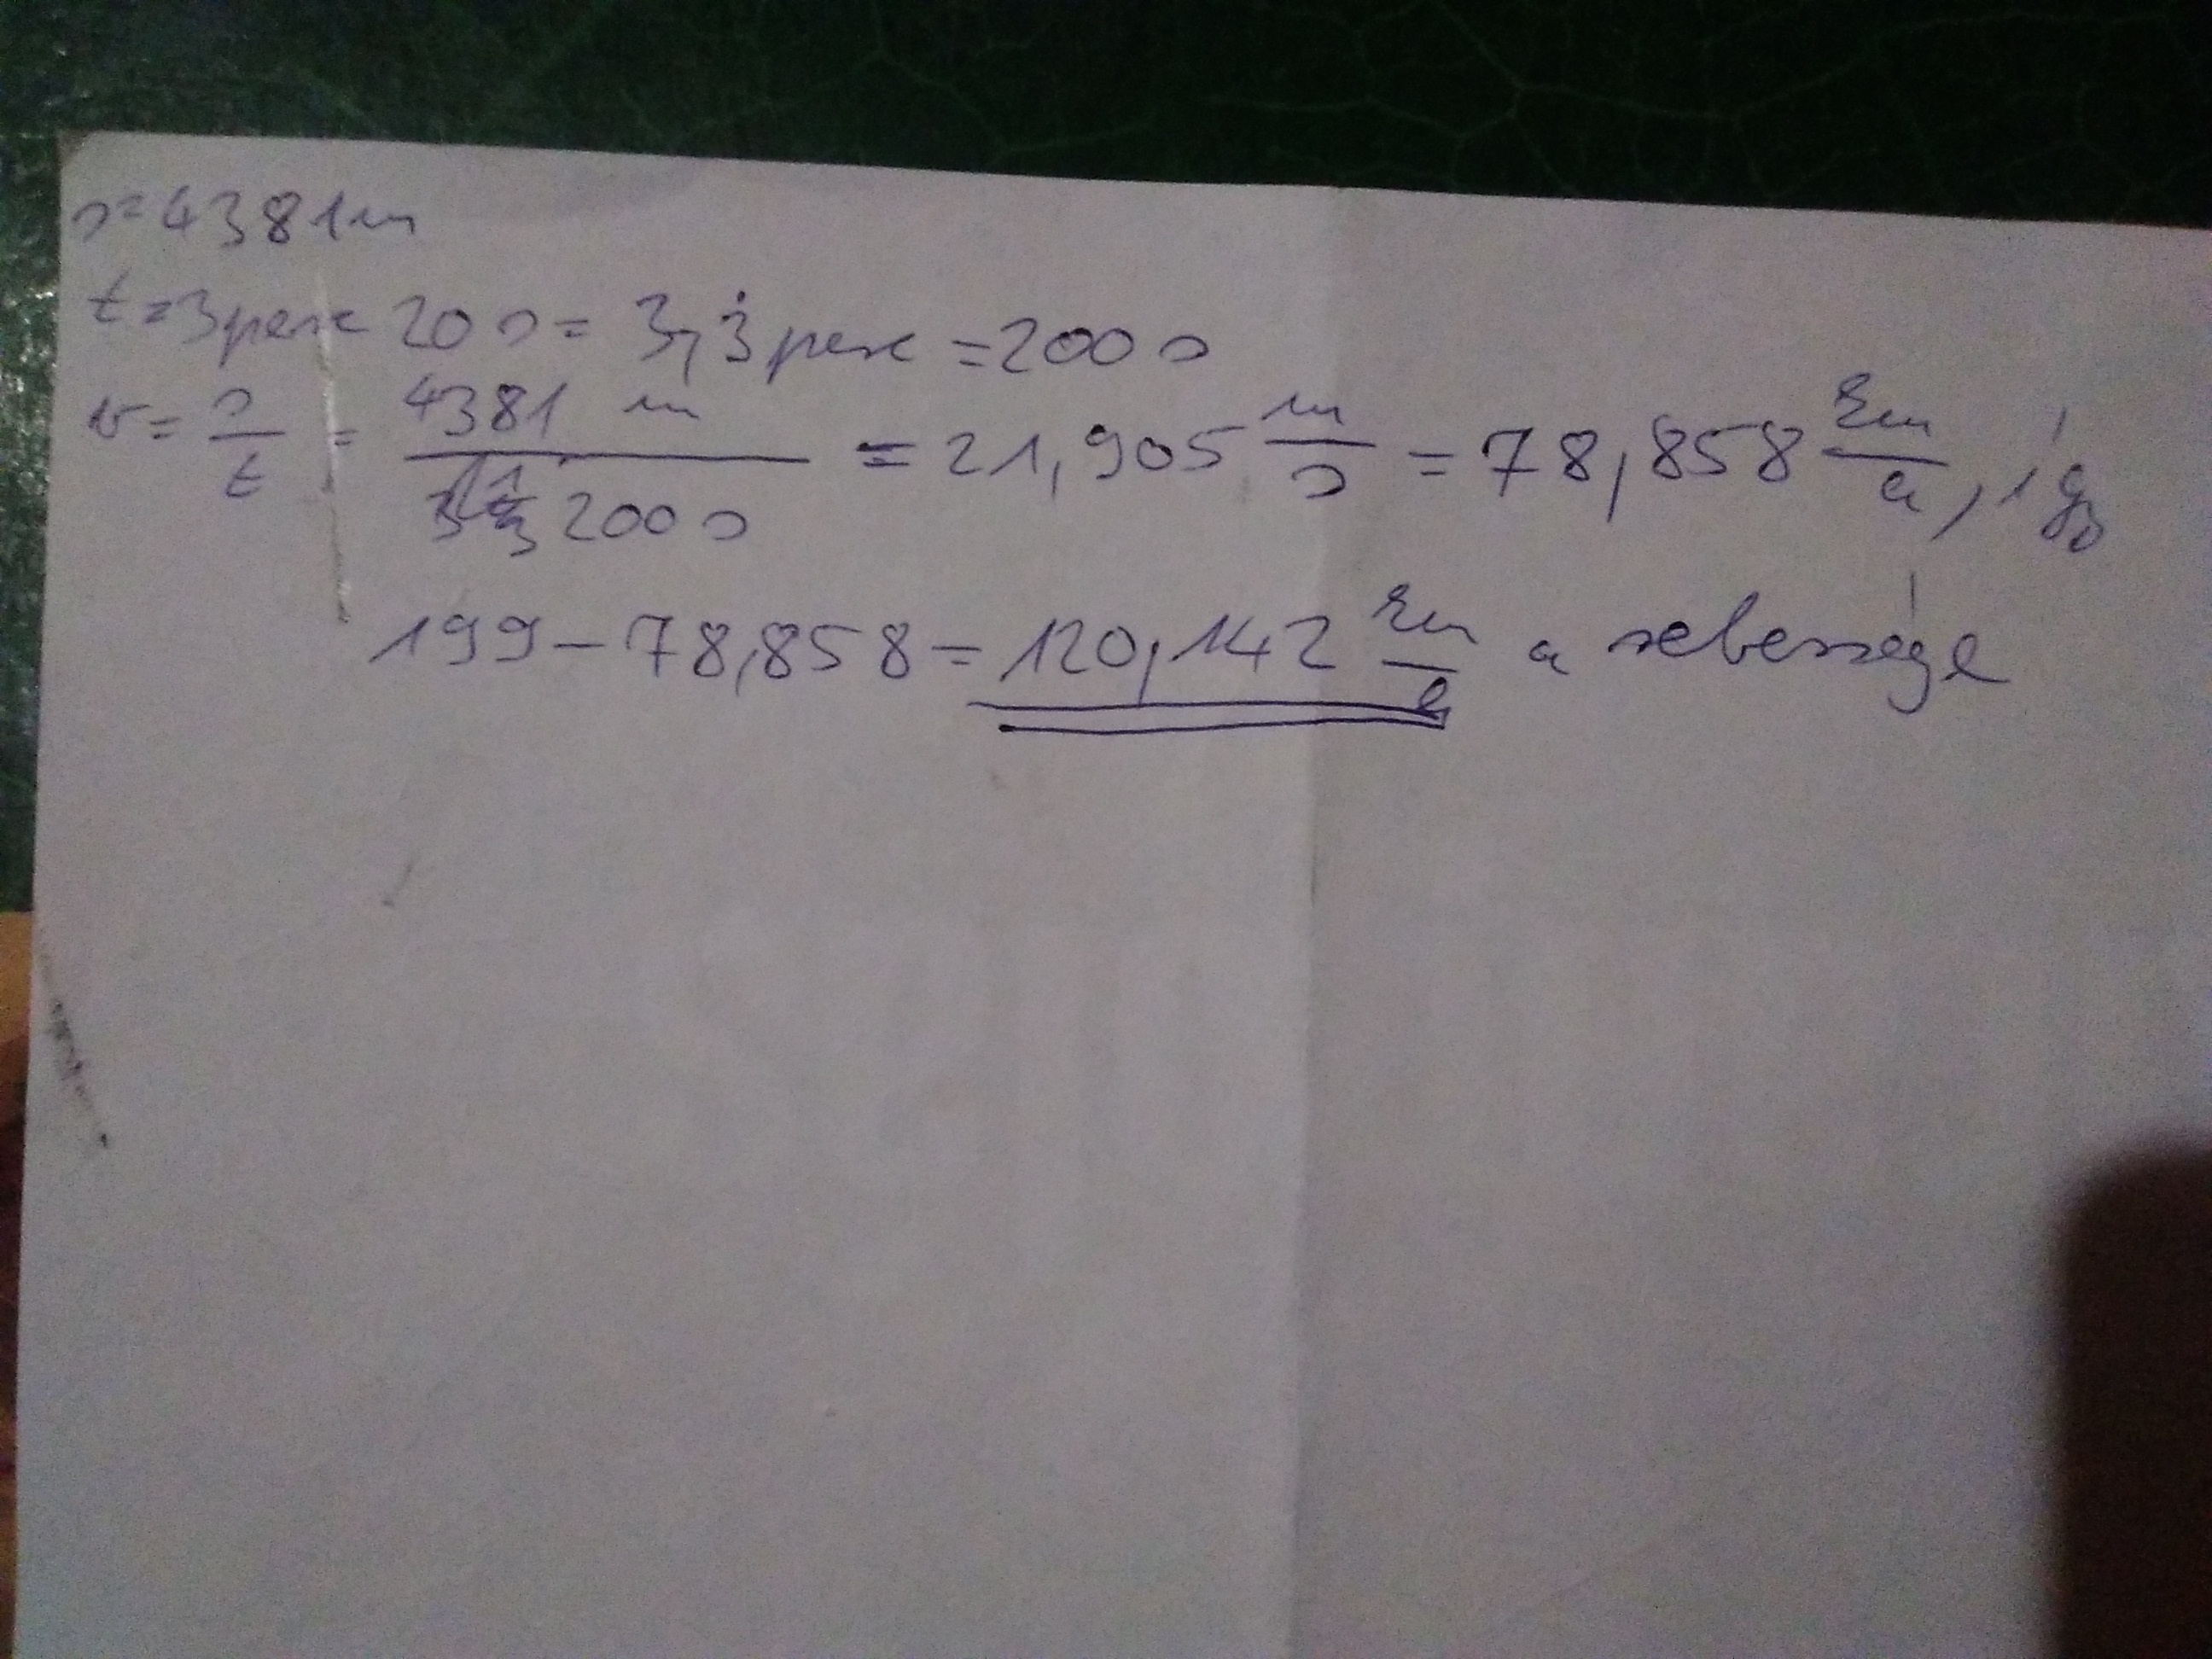 s=4381m
t=3perc 20 s= 3,3̇ perc =200 s
v= s/t = 4381 m / 200 s = 21,905 m/s = 78,858 km/h, így
199-78,858=120,142 km/h a sebessége